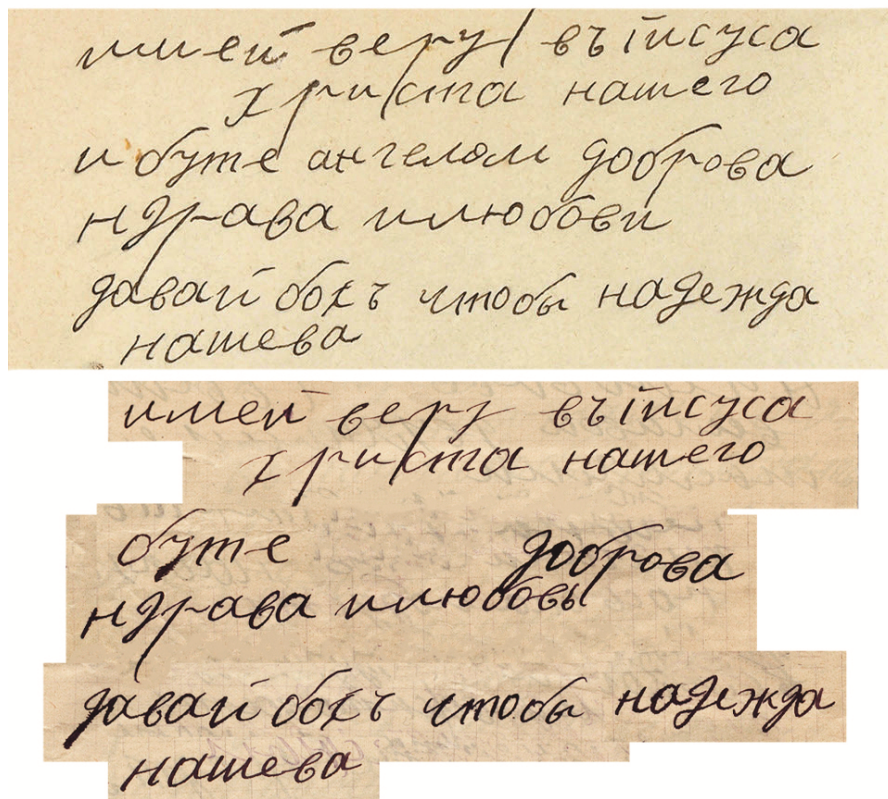 имей веру въ їисуса
христа нашего
и буте ангелом доброва
ндрава илюбови
давай бохъ чтобы надежда
нашева
имей веру въ їисуса
христа нашего
буте доброва
ндрава илюбовы
давай бохъ чтобы надежда
нашева